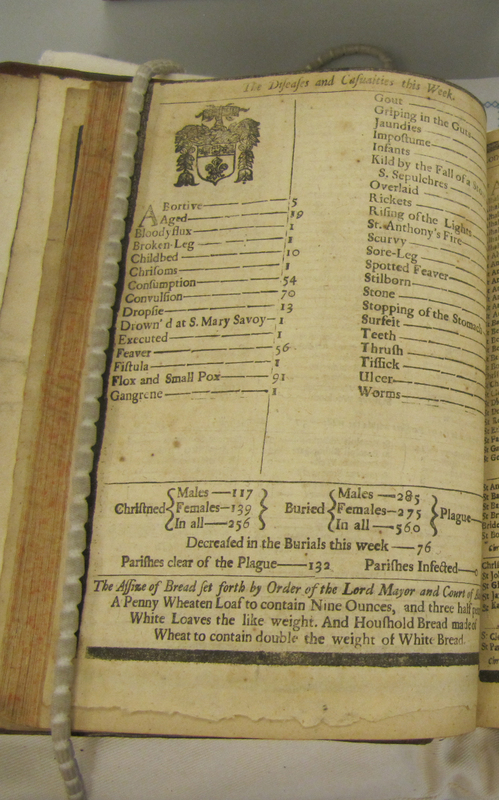 The Diseases and Casualties this Week.
Abortive 5
Aged 19
Bloody flux 1
Broken Leg 1
Childbed 10
Chrisoms 1
Consumption 54
Convulsion 70
Dropsie 13
Drown'd at S. Mary Savoy 1
Executed 1
Feaver 56
Fistula 1
Flox and Small Pox 91
Gangrene 1
Gout
Griping in the Guts
Jaundies
Impostume
Infants
Kild by the Fall of a
S. Sepulchres
Overlaid
Rickets
Rising of the Lights
St. Anthony's Fire
Scurvy
Sore-Leg
Spotted Feaver
Stilborn
Stone
Stopping of the Stomach
Surfeit
Teeth
Thrush
Tissick
Ulcer
Worms
Christned { Males—117 Females—139 In all—256 } Buried { Males—285 Females—275 In all—560 } Plague
Decreased in the Burials this week—76
Parishes clear of the Plague—132 Parishes Infected—0
The Assize of Bread set forth by Order of the Lord Mayor and Court of
A Penny Wheaten Loaf to contain Nine Ounces, and three half
White Loaves the like weight. And Houshold Bread made of
Wheat to contain double the weight of White Bread.